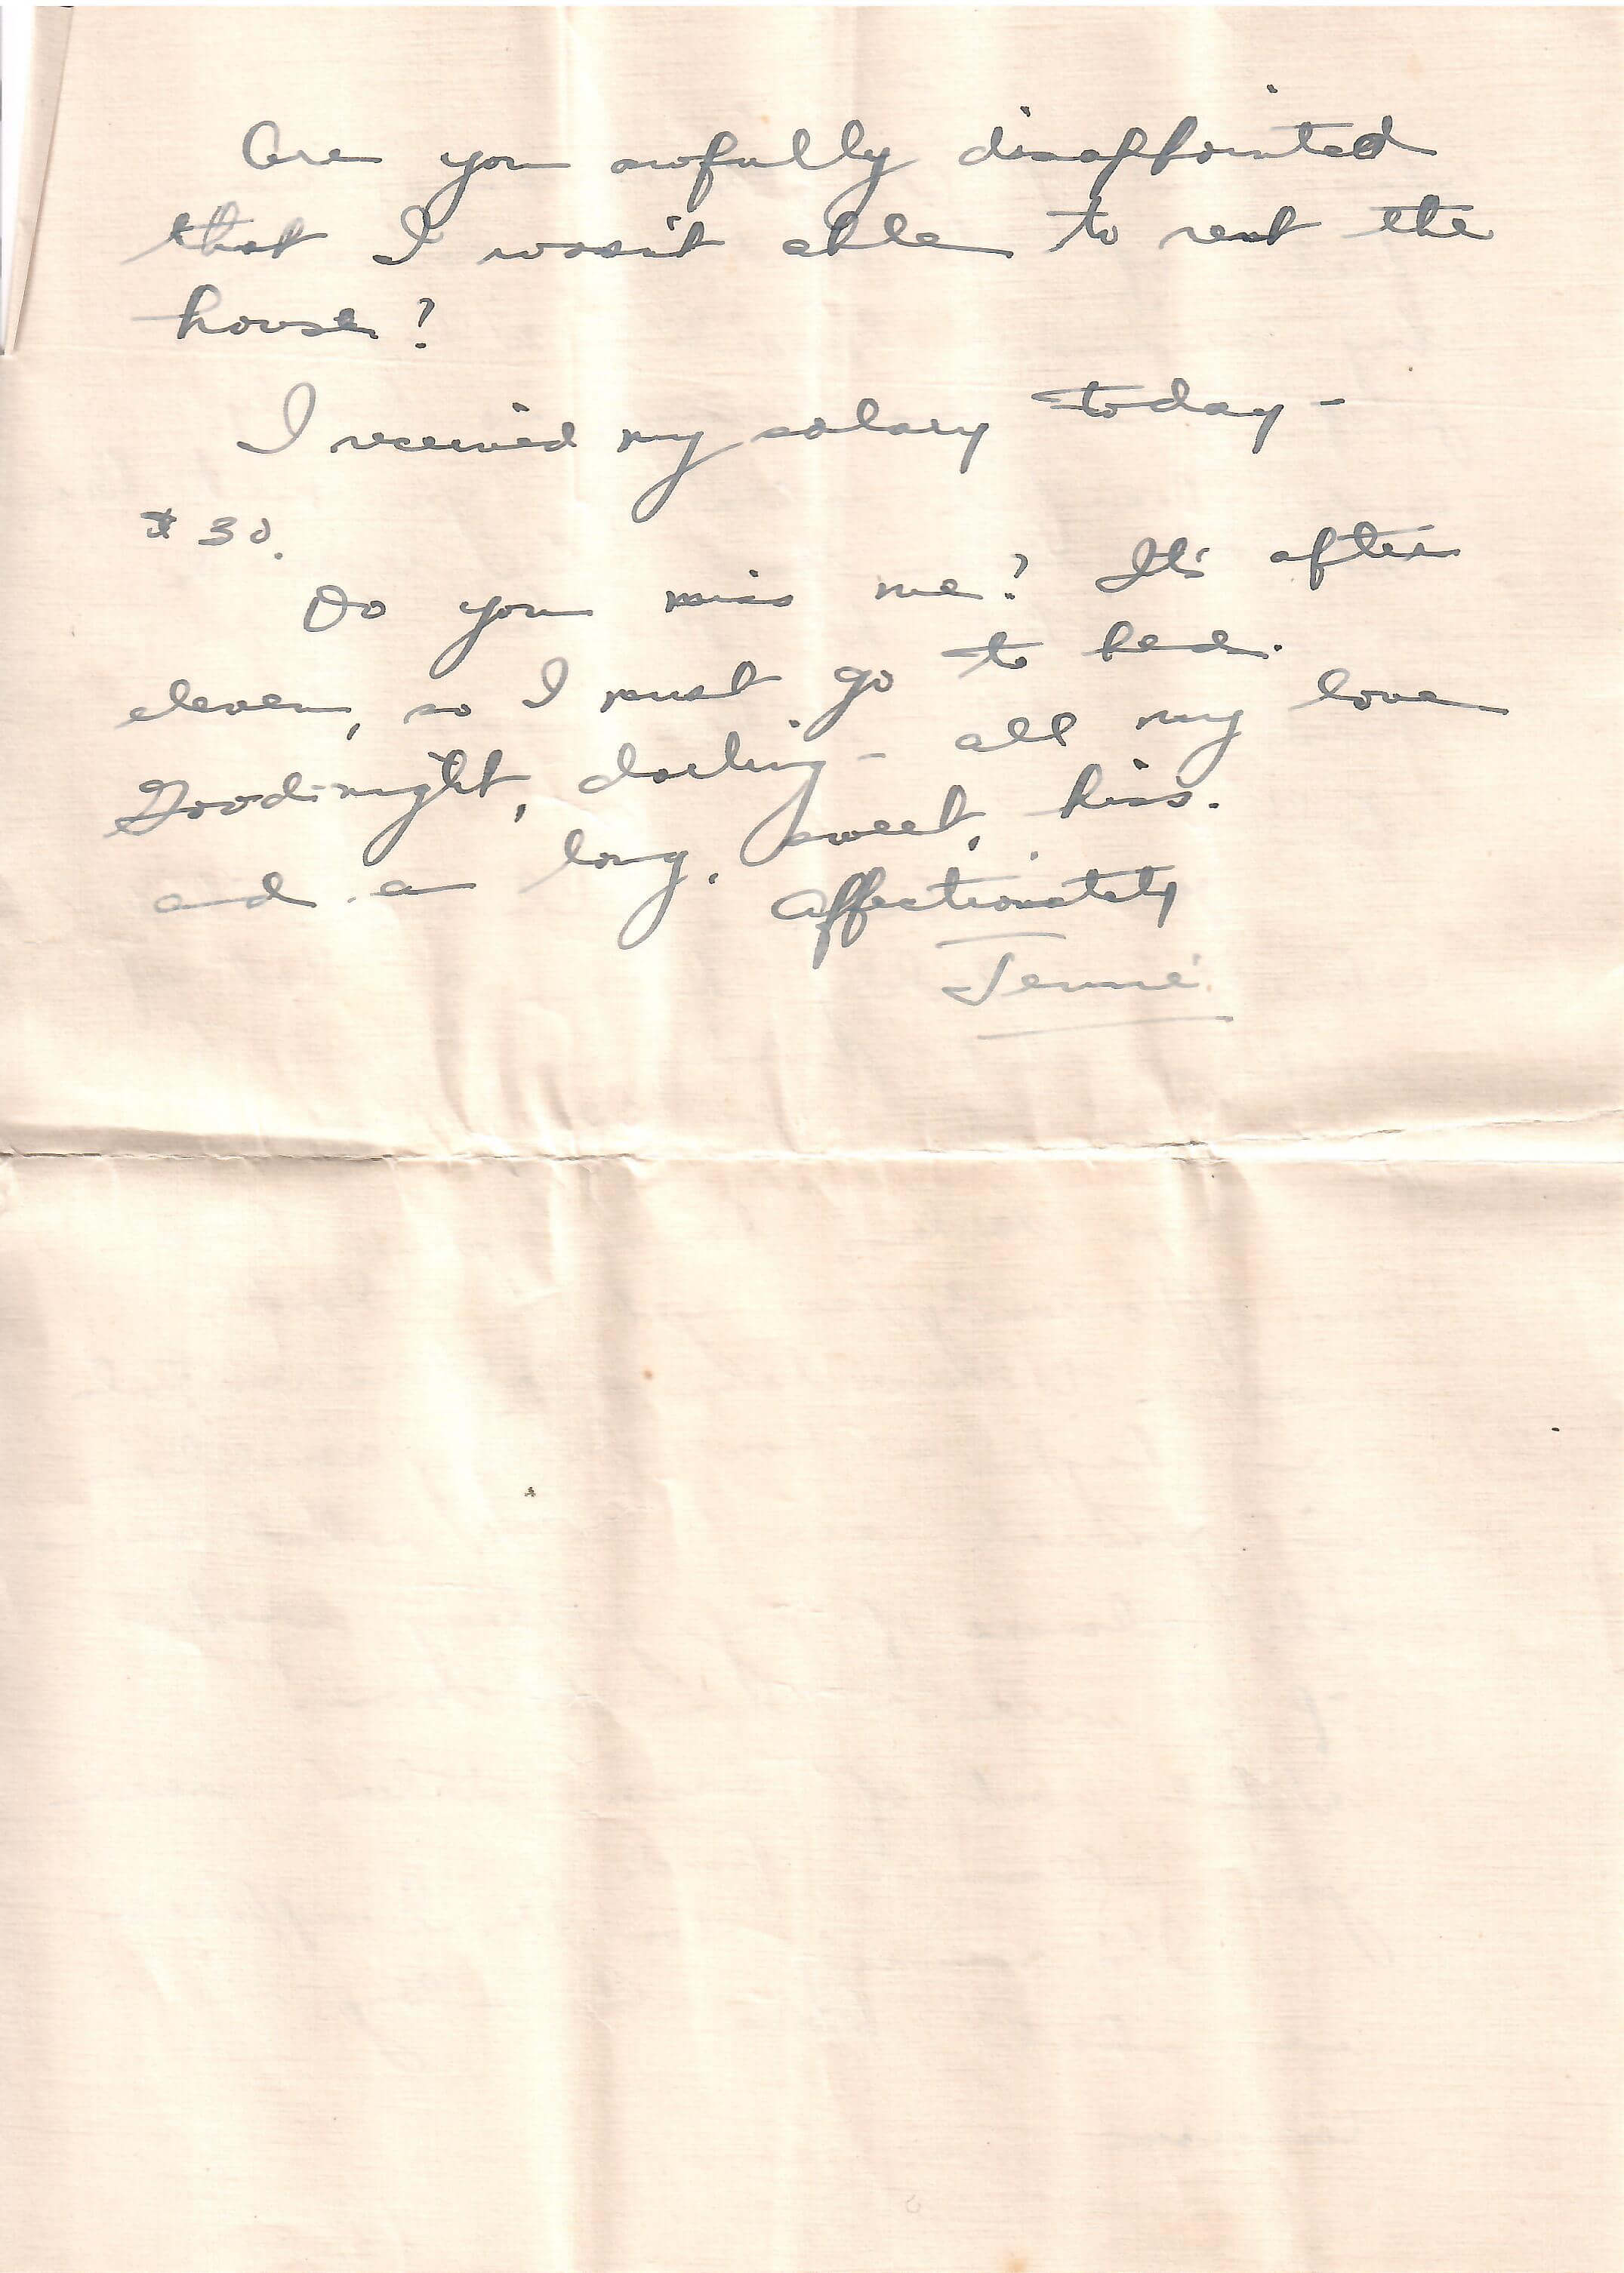 Are you awfully disappointed
that I wasn't able to rent the
house?
I received my salary today -
$30.
Do you miss me? It's after
eleven, so I must go to bed.
Good-night, darling - all my love
and a long, sweet, kiss.
Affectionately
Jennie